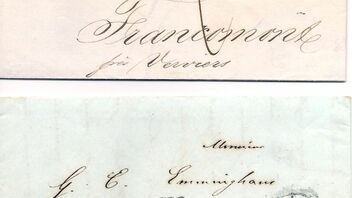 Francomont
près Verviers
Monsieur
G. E. Emminghaus